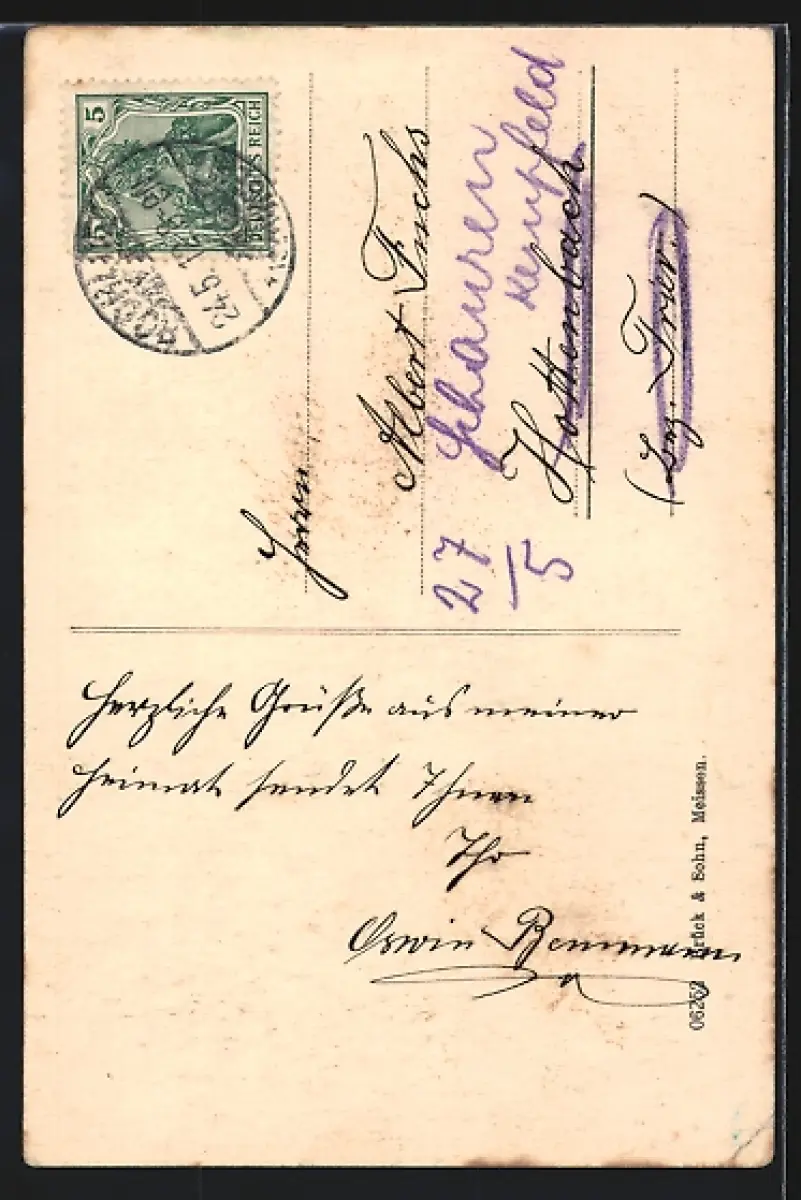 5 5
DEUTSCHES REICH
24.5.13
Herrn
Albert Fuchs
Schauren
Kempfeld
Hottenbach
(Bez. Trier.)
27/5
Herzliche Grüße aus meiner
Heimat sendet Ihnen
Ihr
Oswin Bemmann
Brück & Sohn, Meissen.